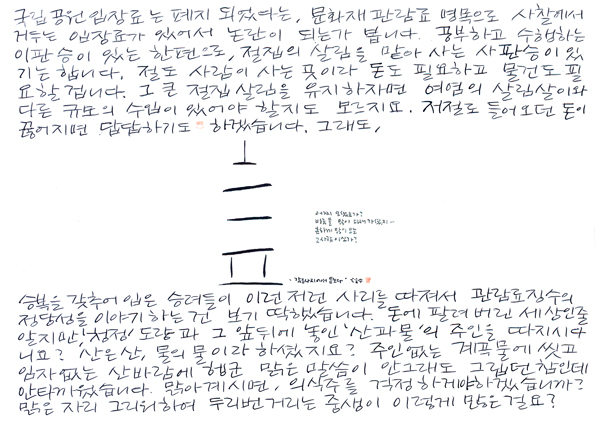 국립공원 입장료는 폐지 되었다는, 문화재 관람료 명목으로 사찰에서
거두는 입장료가 있어서 논란이 되는가 봅니다. 공부하고 수행하는
이판승이 있는 한편으로, 절집의 살림을 맡아 사는 사판승이 있
기는 합니다. 절도 사람이 사는 곳이라 돈도 필요하고 물건도 필
요할 겁니다. 그 큰 절집 살림을 유지하자면 여염의 살림살이와
다른 규모의 수입이 있어야 할지도 모르지요. 저절로 들어오던 돈이
끊어지면 답답하기도 하겠습니다. 그래도,
어찌
승복을 갖추어 입은 승려들이 이런 저런 사리를 따져서 관람료징수의
정당성을 이야기하는 건 보기 딱했습니다. 돈에 팔려 버린 세상인줄
알지만 '청정' 도량과 그 앞뒤에 놓인 '산과 물'의 주인을 따지시다
니요? 산은 산, 물의 물이라 하셨지요? 주인 없는 계곡물에 씻고
임자 없는 산바람에 헹군 맑은 말씀이 안그래도 그립던 참인데
안타까웠습니다. 맑아계시면, 의식주를 걱정하게야하겠습니까?
맑은 자리 그리워하여 두리번거리는 중생이 이렇게 많은걸요?